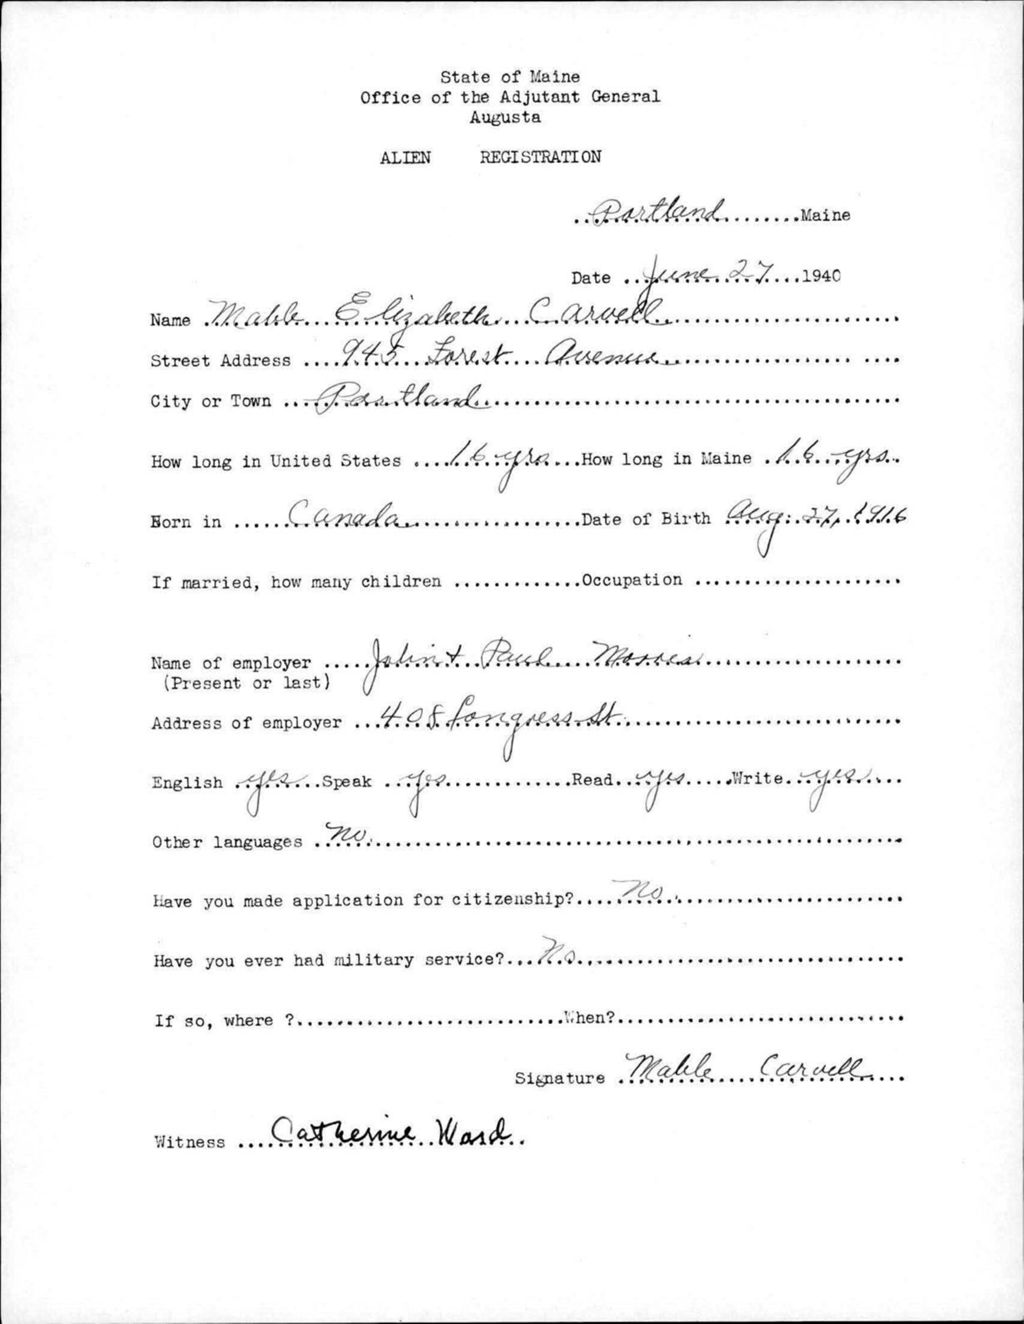 State of Maine
Office of the Adjutant General
Augusta
ALIEN REGISTRATION
Portland Maine
Date June 27 1940
Name Mable Elizabeth Carvell
Street Address 945 Forest Avenue
City or Town Portland
How long in United States 16 yrs How long in Maine 16 yrs.
Born in Canada Date of Birth Aug. 27, 1916
If married, how many children Occupation
Name of employer John & Paul Morris
(Present or last)
Address of employer 408 Congress St.
English yes Speak yes Read yes Write yes
Other languages no
Have you made application for citizenship? no
Have you ever had military service? No
If so, where ? When?
Signature Mable Carvell
Witness Catherine Ward